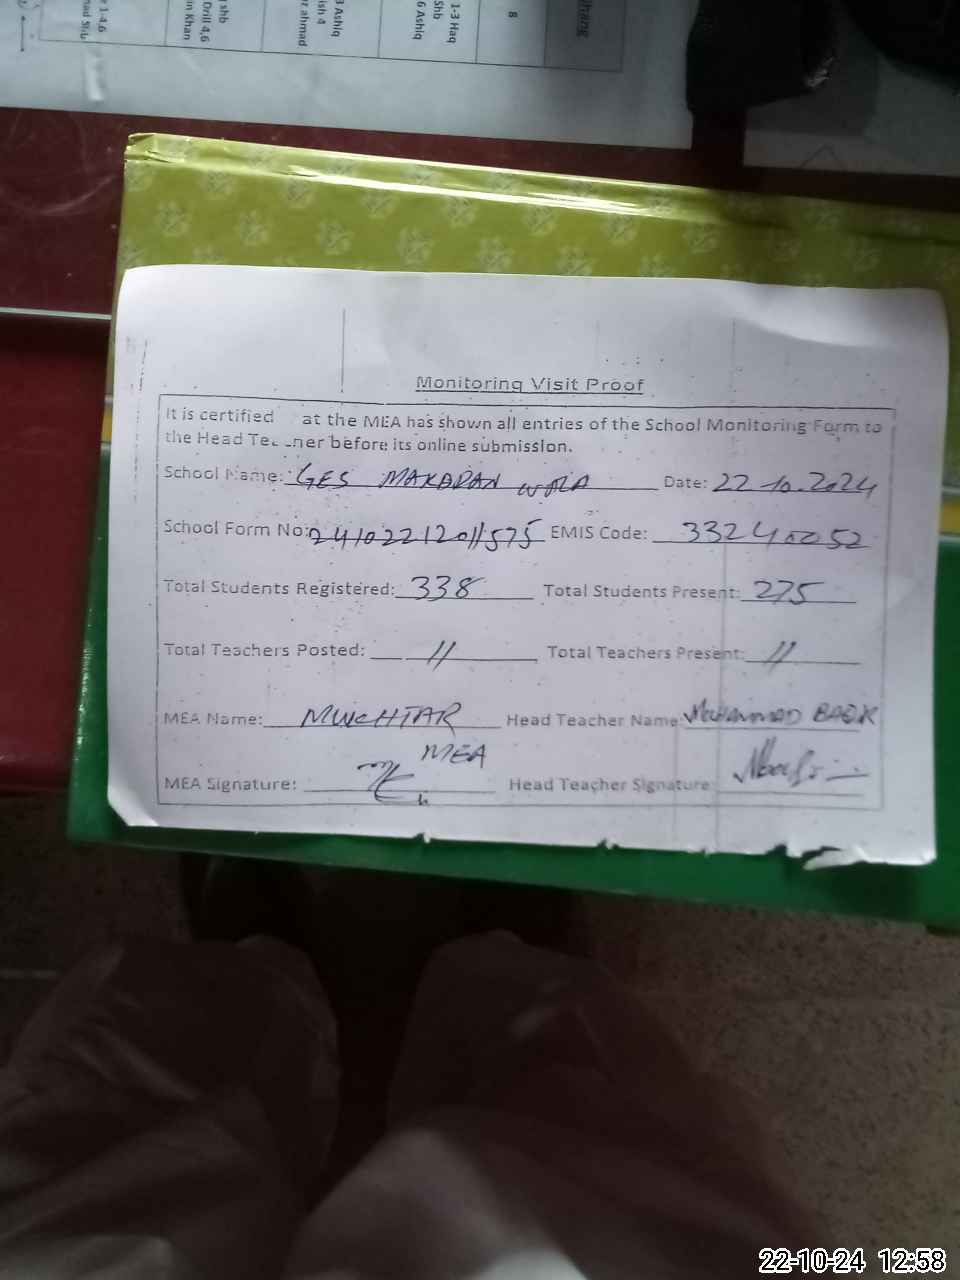 8
1-3 Haq
Shb
6 Ashiq
3 Ashiq
ish 4
ahmad
shb
Drill 4,6
in Khan
1-4,6
Monitoring Visit Proof
It is certified at the MEA has shown all entries of the School Monitoring Form to
the Head Te ner before its online submission.
School Name: GES MAKADAN WALA Date: 22-10-2024
School Form No: 241022121011575 EMIS Code:
Total Students Registered: 338 Total Students Present: 275
Total Teachers Posted: 11 Total Teachers Present: 11
MEA Name: MUKHTAR Head Teacher Name: MUHAMMAD
MEA
MEA Signature: Head Teacher Signature:
22-10-24 12:58